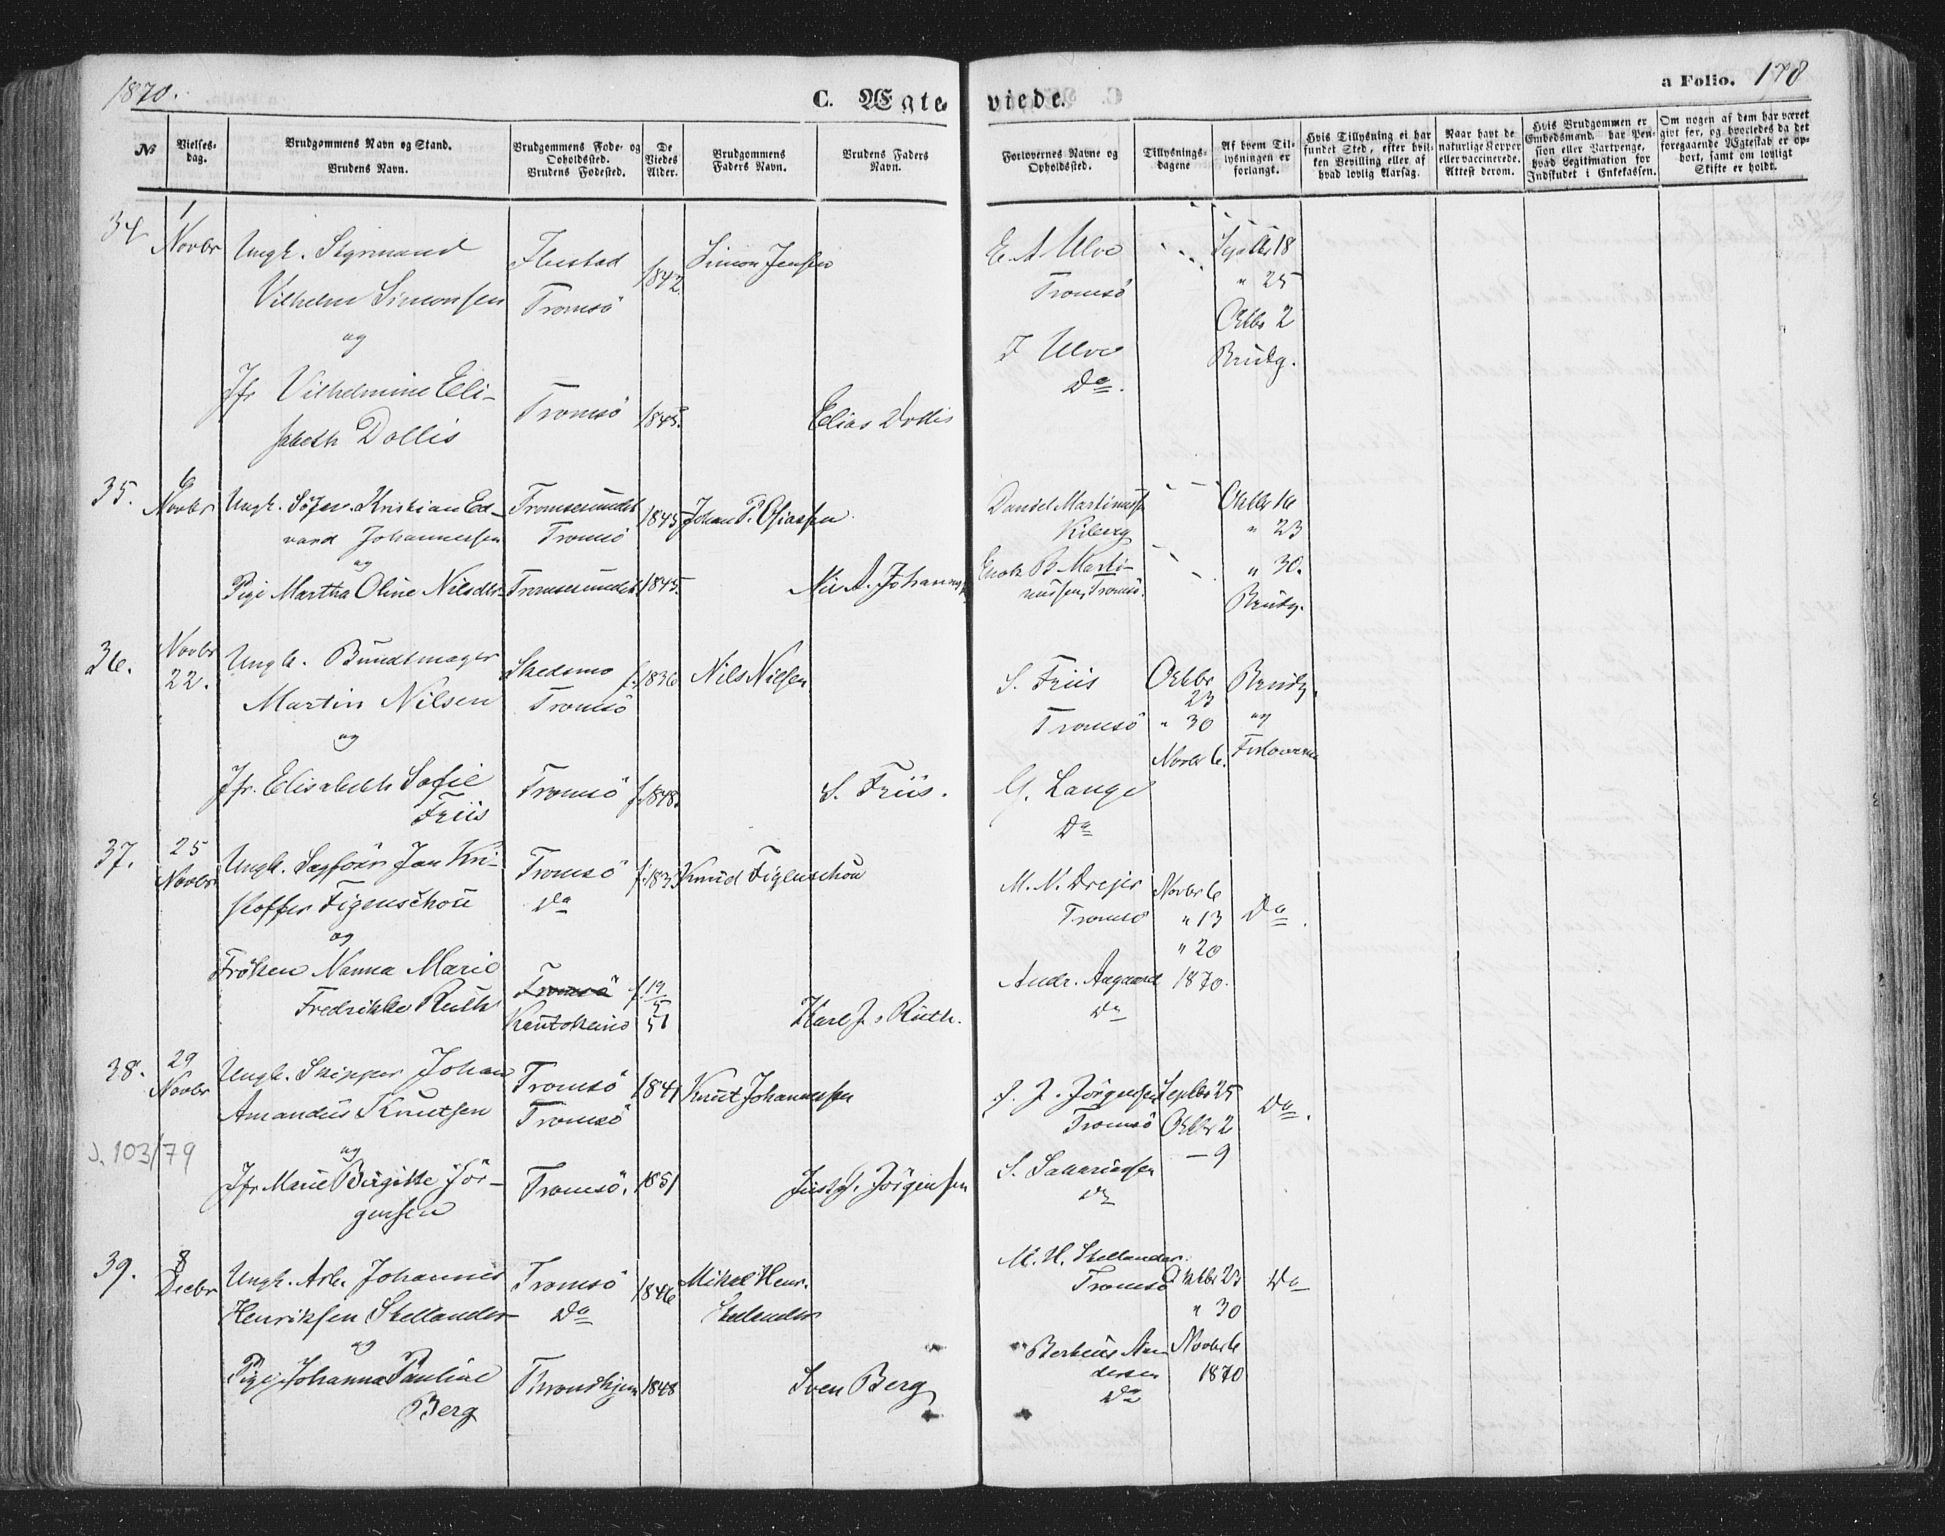 1870.
C. Ægte viede.
a Folio. 178
No
Vielses-dag.
Brudgommens Navn og Stand.
Brudens Navn.
Brudgommens Føde- og Opholdssted.
Brudens Fødested.
De Viedes Alder.
Brudgommens Faders Navn.
Brudens Faders Navn.
Forlovernes Navne og Opholdssted.
Tillysnings-dagene
Af hvem Tillysningen er forlangt.
Hvis Tillysning ei har fundet Sted, efter hvilken Bevilling eller af hvad lovlig Aarsag.
Naar havt de naturlige Kopper eller vaccinerede. Attest derom.
Hvis Brudgommen er Embedsmand, har Pension eller Vartpenge, hvad Legitimation for Indskudet i Enkekassen.
Om nogen af dem har været gift før, og hvorledes da det foregaaende Ægteskab er ophørt, samt om lovligt Skifte er holdt.
34 1 Novbr
Ungk. Sigmund
Vilhelm Simonsen
og
Jfr Vilhelmine Eli-
sabeth Dollis
Tromsö
Tromsö
1842.
1845.
Simon Jensen
Elias Dollis
E. A Ulve
Tromsö
J Ulve
Do.
Septbr 18
" 25
Octbr 2
Brudg.
35. 6 Novbr
Ungk. Søren Kristian Ed-
vard Johannessen
og
Pige Martha Oline Nilsdtr
Tromsesundet
Tromsö
Tromsesundet
1845
1845.
Johan P.
Daniel Martinussen
Kiberg
Enok B. Marti-
nussen, Tromsö.
Octbr 16
" 23
" 30.
Brudg.
36. Novbr 22.
Ungk. Bundtmager
Martin Nilsen
og
Jfr. Elisabeth Sofie
Friis
Skedsmo
Tromsö
Tromsö
f. 1836
f. 1848.
Nils Nilsen
S. Friis.
S. Friis
Tromsö
G. Lange
Do
Octbr 23
" 30
Novbr 6.
Brudg.
og
Forloverne
37. 25 Novbr
Ungk. Sagfører Jan Kri-
stoffer Figenschou
og
Frøken Nanna Marie
Fredrikke Ruth
Tromsö
Do
Tromsö
Kautokeino
f. 1833
f. 19/5 51
Knud Figenschou
Karl J. Ruth.
M. N. Drejer
Tromsö
Andr. Aagaard
Do
Novbr 6
" 13
" 20
1870.
Do.
38. 29 Novbr
Ungk. Skipper Johan
Amandus Knutsen
og
Jfr Marie Birgitte Jör-
gensen
J. 103/79
Tromsö
Tromsö
Tromsö.
1841
1851
Knut Johannessen
J. J. Jörgensen
Tromsö
S. Sakariassen
Do
Septbr 25
Octbr 2
— 9
Do.
39. 8 Decbr
Ungk. Arb. Johannes
Henriksen Stellander
og
Pige Johanna Pauline
Berg
Tromsö
Do
Throndhjem
1846
1848
Mikal Henr.
Stellander
Sven Berg
M. H. Stellander
Tromsö
Berteus An-
dersen
Do
Octbr 23
" 30
Novbr 6
1870
Do